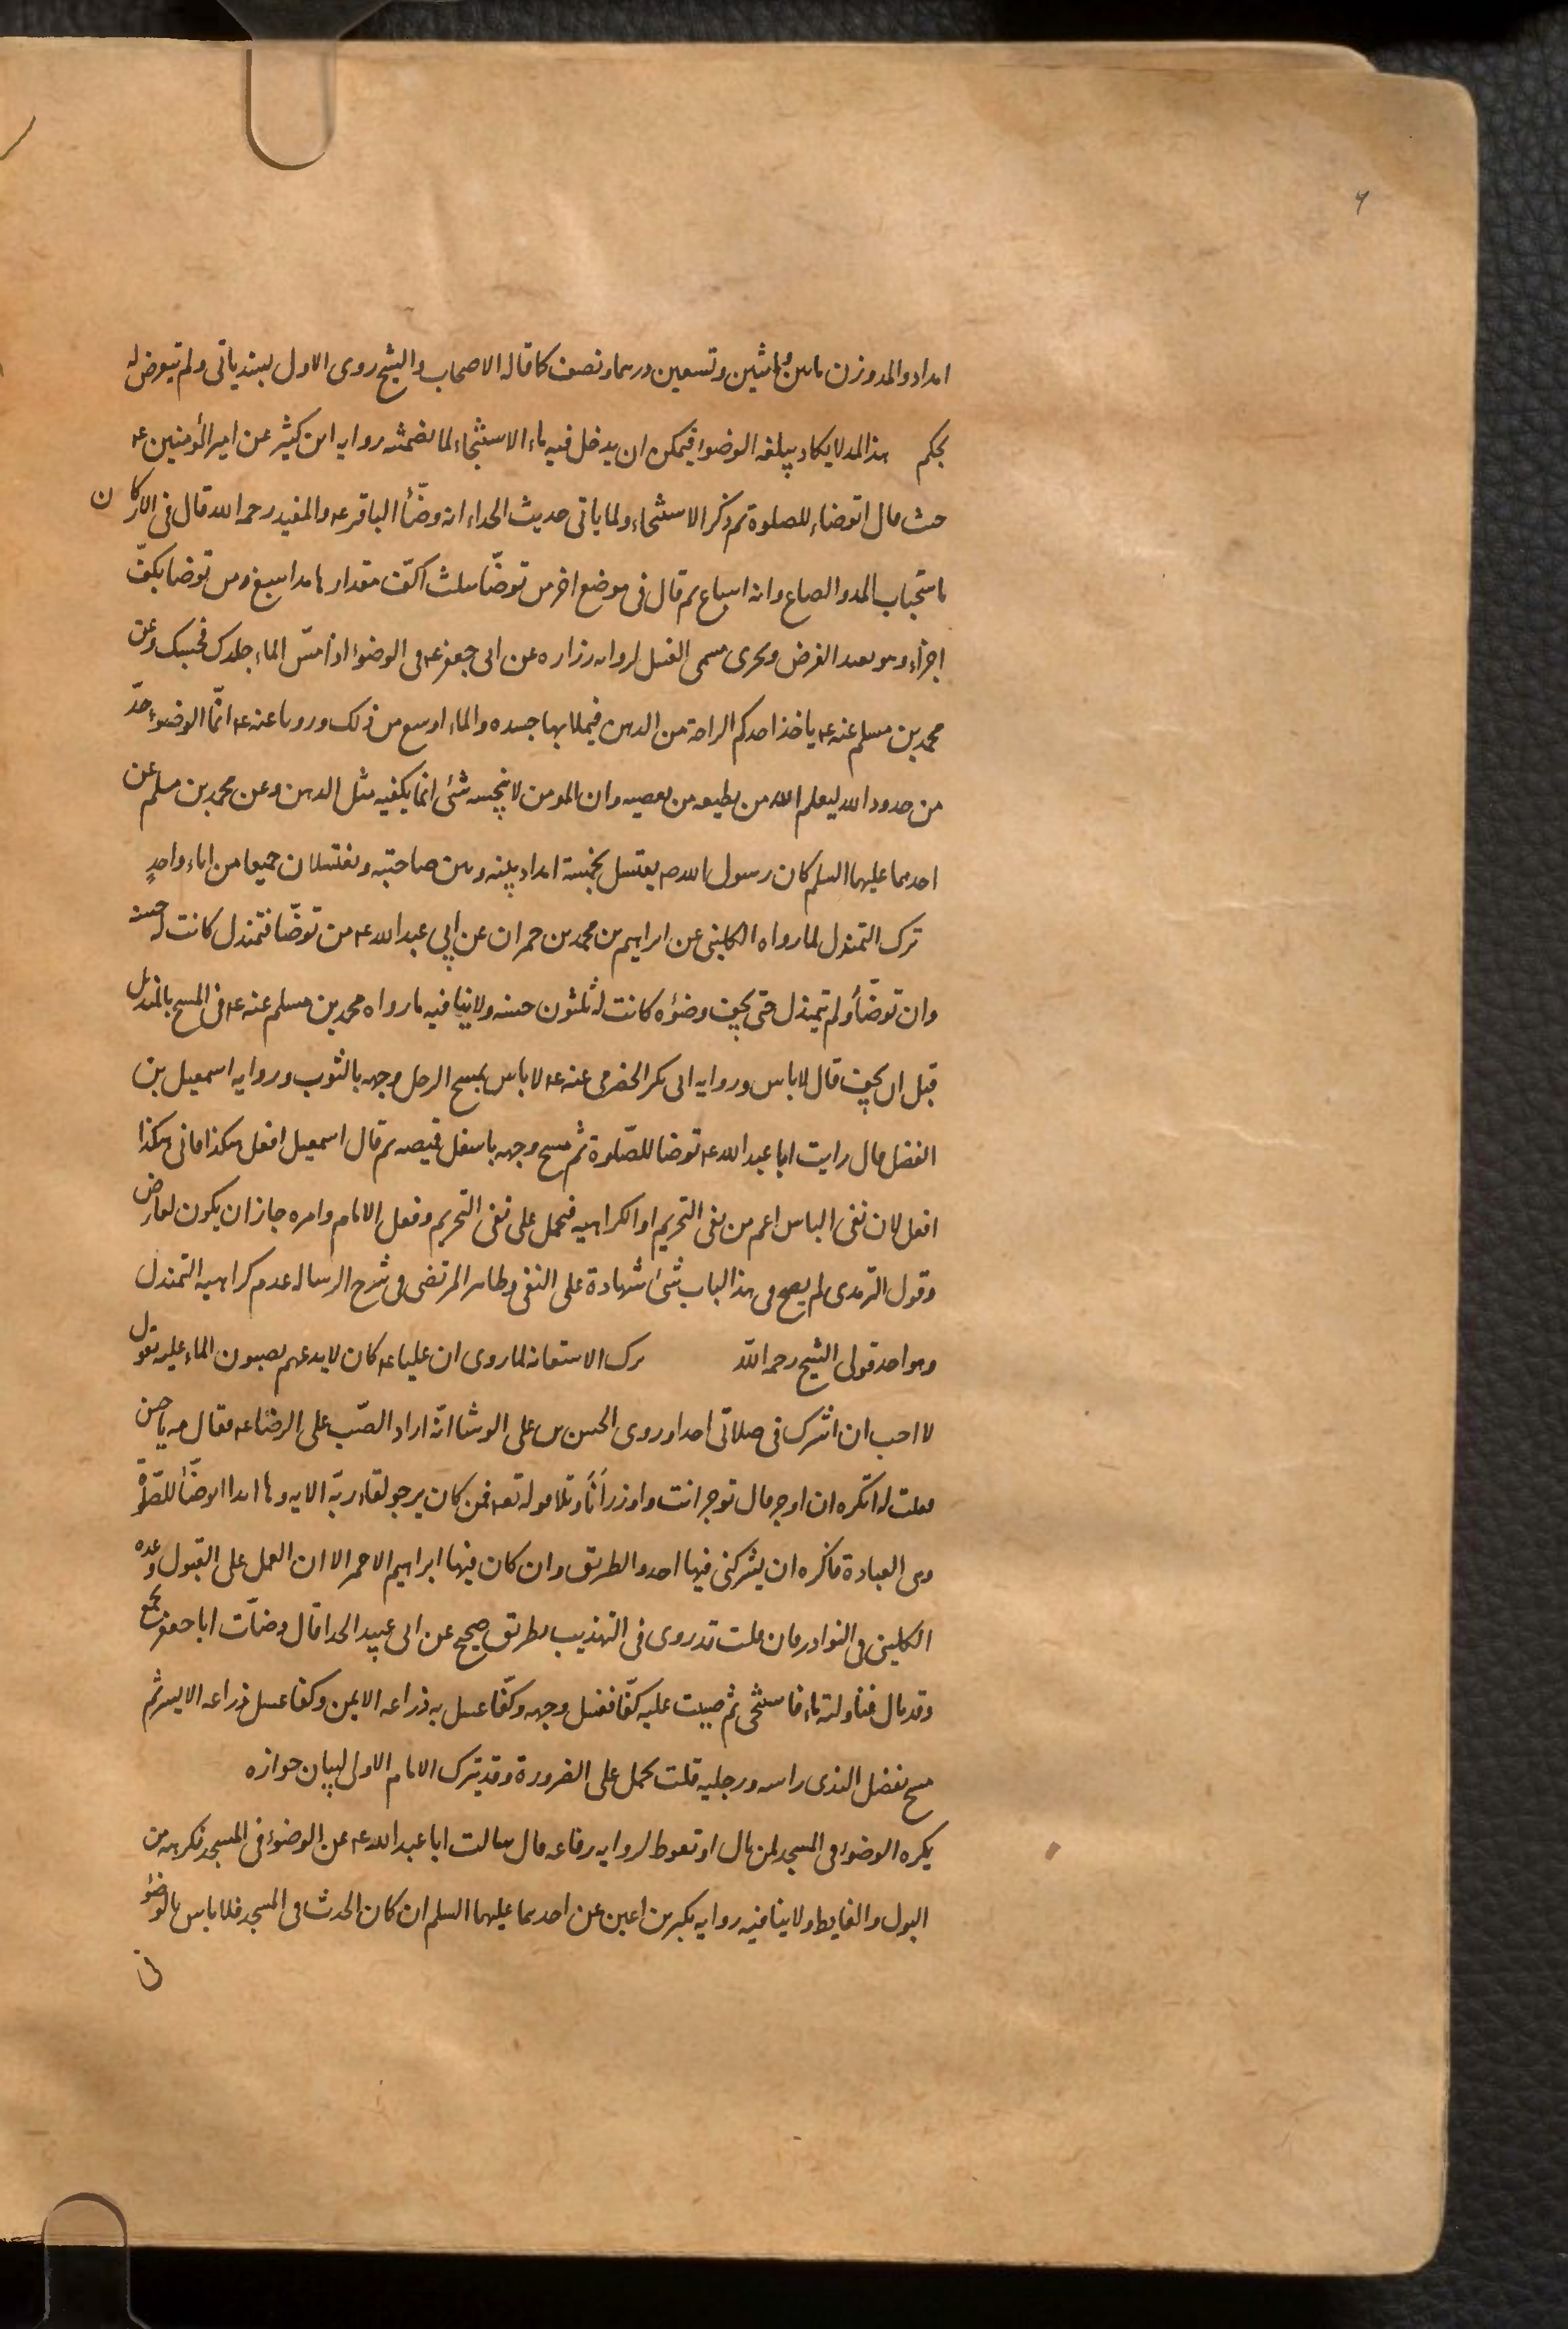 ٦
امداد والمد وزن مائتين واثنين وتسعين درهما ونصف كما قاله الاصحاب والشيخ روى الاول بسند ياتى ولم يتعرض له
بحكم هذا المد لا يكاد يبلغه الوضوء فيمكن ان يدخل فيه ماء الاستنجاء لما تضمنته رواية ابن كثير عن امير المؤمنين عه
حيث قال اتوضاء للصلوة ثم ذكر الاستنجاء ولما ياتى حديث الحذاء انه وضّأ الباقر عه والمفيد رحمه الله قال فى الاركان
باستحباب المد والصاع وانه اسباغ ثم قال فى موضع اخر من توضّا بثلث اكفّ مقدارها مد اسبغ ومن توضا بكفّ
اجزأه وهو بعيد الفرض ويجرى مسمى الغسل لرواية زرارة عن ابى جعفر عه فى الوضوء اذا مسّ الماء جلدك فحسبك وعن
محمد بن مسلم عنه عه ياخذ احدكم الراحة من الدهن فيملا بها جسده والماء اوسع من ذلك ورويا عنه عه انّما الوضوء حدّ
من حدود الله ليعلم الله من يطيعه من يعصيه وان المومن لا ينجسه شئ انما يكفيه مثل الدهن وعن محمد بن مسلم عن
احدهما عليهما السلم كان رسول الله ص يغتسل بخمسة امداد بينه وبين صاحبته ويغتسلان جميعا من اناء واحدٍ
ترك التمندل لما رواه الكلينى عن ابراهيم بن محمد بن حمران عن ابى عبد الله عه من توضّا فتمندل كانت له حسنه
وان توضّأ ولم يتمندل حتى يجف وضوءه كانت له ثلثون حسنه ولا ينافيه ما رواه محمد بن مسلم عنه عه فى المسح بالمنديل
قبل ان يجف قال لاباس ورواية ابى بكر الحضرمى عنه عه لاباس بمسح الرجل وجهه بالثوب ورواية اسمعيل بن
الفضل قال رايت ابا عبد الله عه توضا للصّلوة ثم مسح وجهه باسفل قميصه ثم قال اسمعيل افعل هكذا فانى هكذا
افعل لان نفى الباس اعم من نفى التحريم او الكراهيه فيحمل على نفى التحريم وفعل الامام وامره جاز ان يكون لعارض
وقول الترمذى لم يصح فى هذا الباب شئ شهادة على النفى وظاهر المرتضى فى شرح الرساله عدم كراهيه التمندل
وهو احد قولى الشيخ رحمه الله ترك الاستعانه لما روى ان عليا عه كان لا يدعهم يصبون الماء عليه يقول
لا احب ان اشرك فى صلاتى احدا وروى الحسن بن على الوشا انّه اراد الصّب على الرضا عه فقال مه يا حسن
فقلت له اتكره ان اوجر قال توجر انت واوزر انًا وتلا قوله تعه فمن كان يرجو لقاء ربّه الايه وها انا اتوضّأ للصلوة
وهى العبادة فاكره ان يشركنى فيها احد والطريق وان كان فيها ابراهيم الاحمر الا ان العمل على القبول وعده
الكلينى فى النوادر فان قلت قد روى فى التهذيب بطريق صحيح عن ابى عبيد الحذا قال وضات ابا جعفر بجمع
وقد بال فناولته ماء فاستنجى ثم صببت عليه كفّا فغسل وجهه وكفّا غسل به ذراعه الايمن وكفا غسل ذراعه الايسر ثم
مسح بفضل الندى راسه ورجليه قلت يحمل على الضرورة وقد يترك الامام الاولى لبيان جوازه
يكره الوضوء فى المسجد لمن بال او تغوط لرواية رفاعه قال سالت ابا عبد الله عه عن الوضوء فى المسجد فكرهه من
البول والغايط ولا ينافيه رواية بكير بن اعين عن احدهما عليهما السلم ان كان الحدث فى المسجد فلا باس بالوضوء
فى